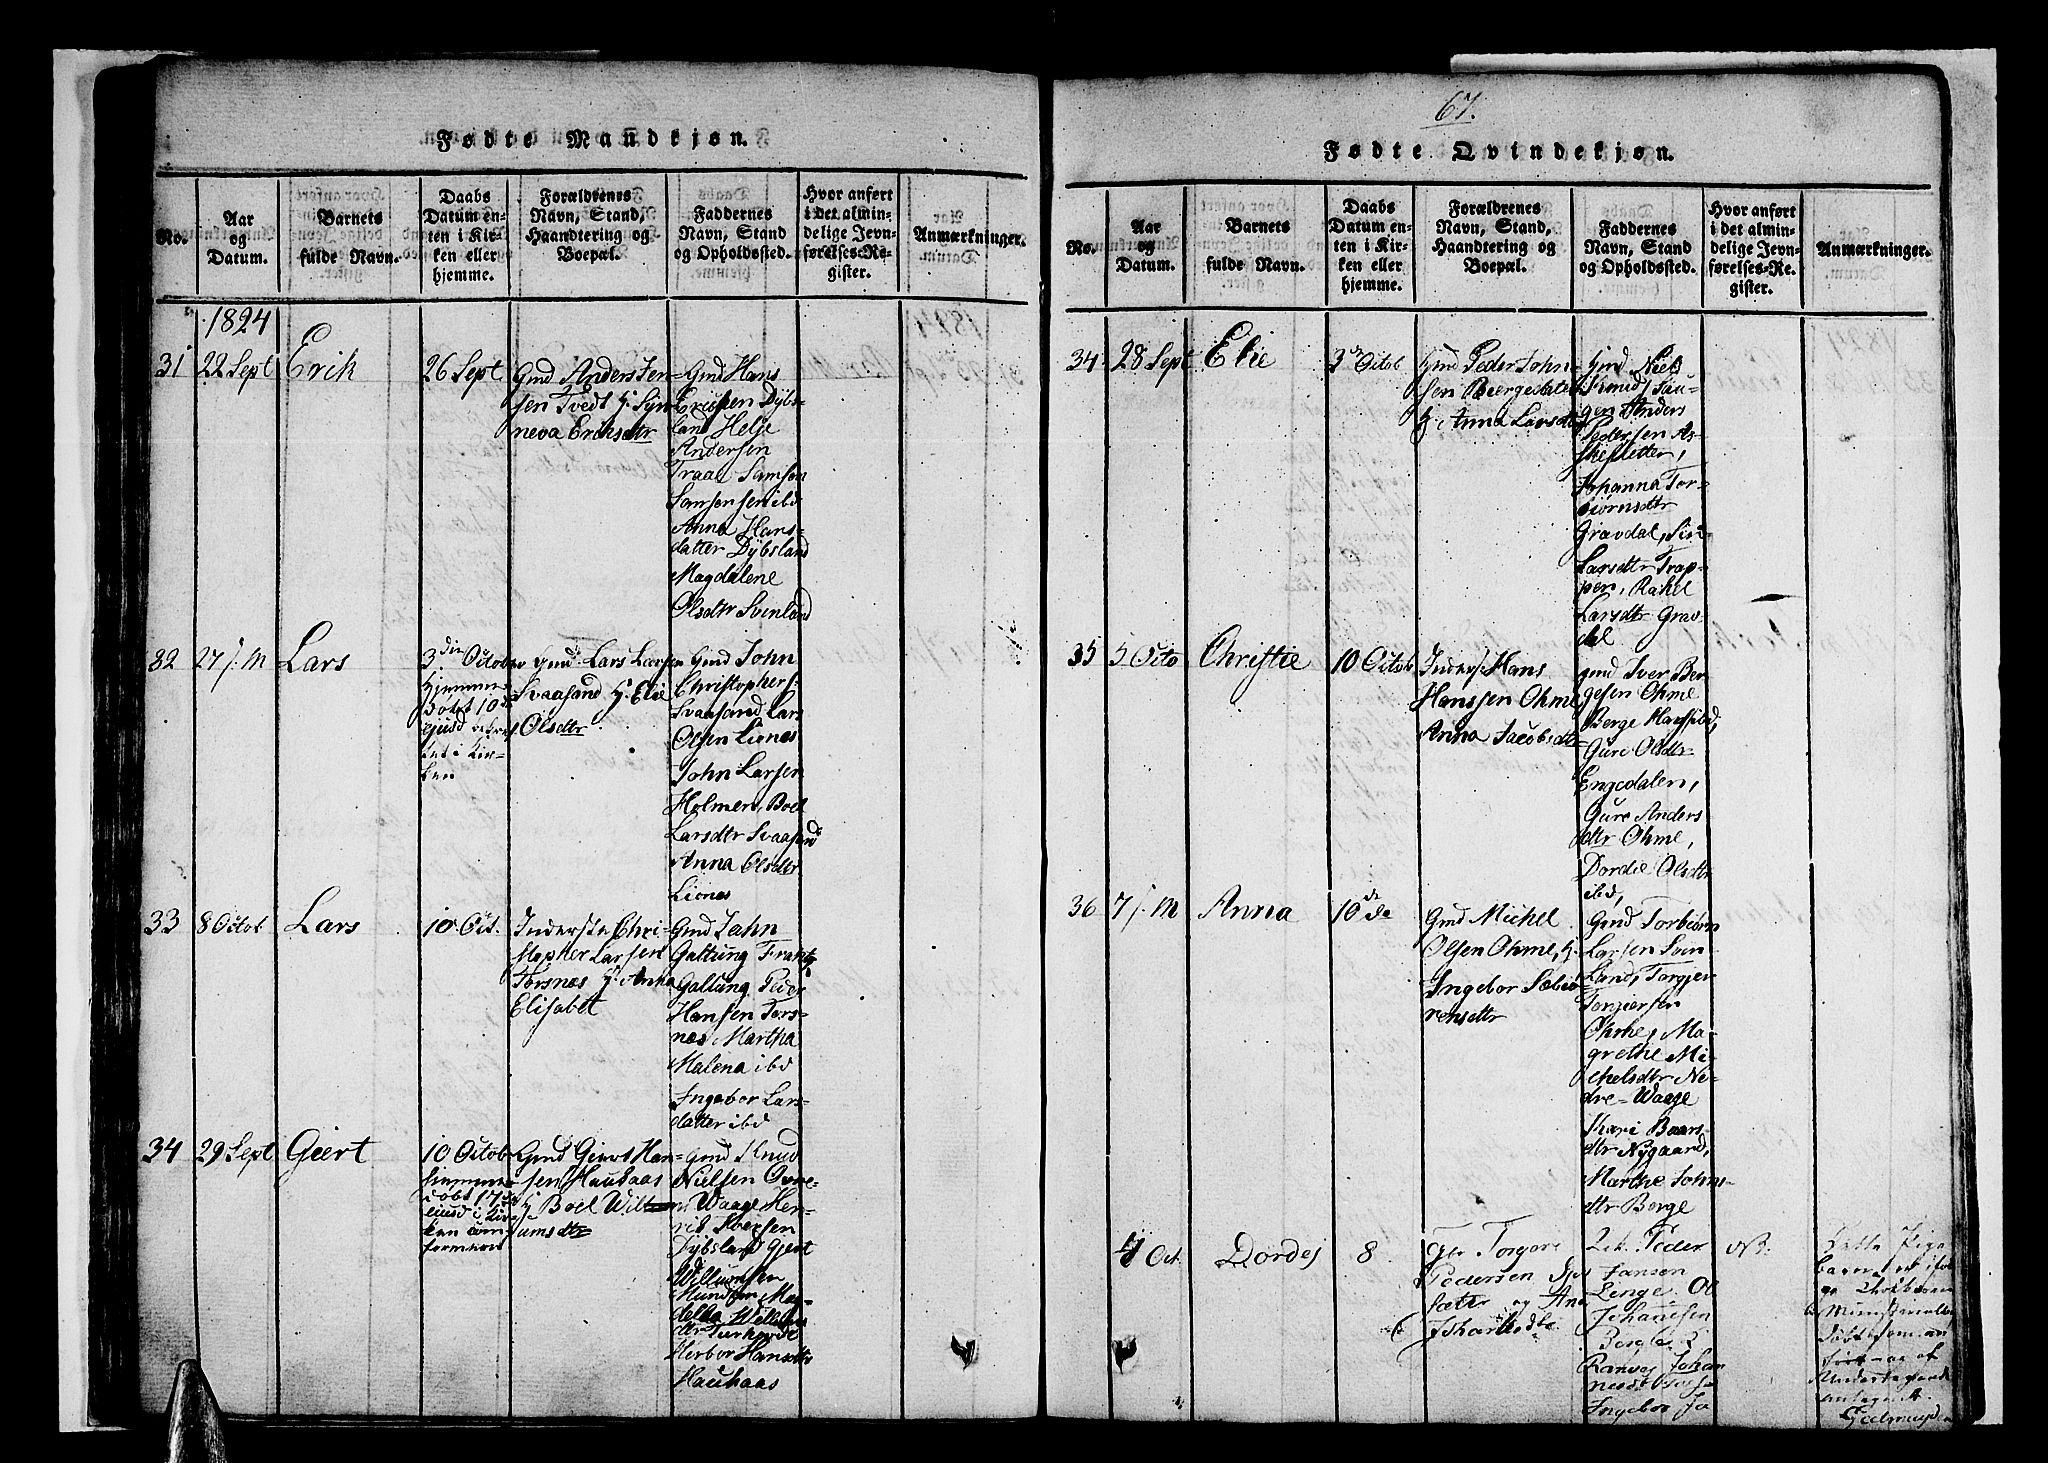 Fødte Mandkjøn.
No.
Aar
og
Datum.
Barnets
fulde Navn.
Daabs
Datum en-
ten i Kir-
ken eller
hjemme.
Forældrenes
Navn, Stand,
Haandtering og
Boepæl.
Faddernes
Navn, Stand
og Opholdssted.
Hvor anført
i det almin-
delige Jevn-
førelses-Re-
gister.
Anmærkninger.
1824
31
22 Sept
Erik
26 Sept
Gmd Anders Jen-
sen Tvedt H. Syn-
neva Eriksdtr
Gmd Hans
Dybs-
land Helje
Andersen
Traae Samson
Samsensen ibd
Anna Hans-
datter Dybsland
Magdalene
Olsdtr Svenland
32
27 s. M
Lars
3die Octob
hjemme
døbt 10de
ejusd
tet i Kir-
ken
Gmd. Lars Larsen
Svaasand H. Elie
Olsdtr
Gmd John
Christophers.
Svaasand Lars
Olsen Lionæs
John Larsen
Holmen, Boel
Larsdtr Svaasand
Anna Olsdtr
Lionæs
33
8 Octob
Lars
10. Oct.
Inderste Chri-
stopher Larsen
Torsnæs H. Anna
Elisabet
Gmd Jahn
Galtung Frantz
Galtung Peder
Hansen Tors-
næs Martha
Malena ibd
Ingebor Lars-
datter ibd
34
29 Sept
Giert
10 Octob
hjemme
døbt 17de
ejusd i Kir-
ken con-
Gmd Giert Han-
sen Haukaas
H Boel Will
umsdtr
Gmd Knud
Nielsen Øvre-
Waage Hen-
rik Ibersen
Dybsland Gjert
Willumsen
Herbor Hansdtr
Haukaas
67.
Fødte Qvindekjøn.
No.
Aar
og
Datum.
Barnets
fulde Navn.
Daabs
Datum en-
ten i Kir-
ken eller
hjemme.
Forældrenes
Navn, Stand,
Haandtering og
Boepæl.
Faddernes
Navn, Stand
og Opholdssted.
Hvor anført
i det almin-
delige Jevn-
førelses-Re-
gister.
Anmærkninger.
34
28 Sept
Elie
3de Octob
Gmd Peder John-
sen
H. Anna Larsdtr
Gmd Niels
Anders
Pedersen As-
Johanna Tor-
biørnsdtr
Gravdal, Siri
Larsdtr Trap-
pen, Rakel
Larsdtr Grav-
dal
35
5 Octo
Christie
10 Octob
Inders. Hans
Hanssen Ohme
Anna Jacobsdtr
gmd Iver Ber-
gesen Ohme
Berge Hansibd,
Gure Olsdtr
Engedalen,
Gure Anders
dtr Ohme,
Dordie Olsdtr
ibd,
36
7 s. M
Anna
10de
Gmd Michel
Olsen Ohme, H.
Ingebor
rensdtr
Gmd Torbiørn
Larsen Sven
Land, Torgier
Torgiersen
Ohme, Ma-
grethe Mi-
chelsdtr Ne-
dre-Waage
Kari Baars-
dtr Nygaard,
Marthe Johns-
dtr Berge
4 Oct.
Dordes
8
Torgere
Pedersen
og Ane
Peder
Jansen
Lenge Ol
Johannesen
Ranveg Johan
Ingebor Jo
NB.
Dette Pige
barn
af
Undertegnede
antegnet.